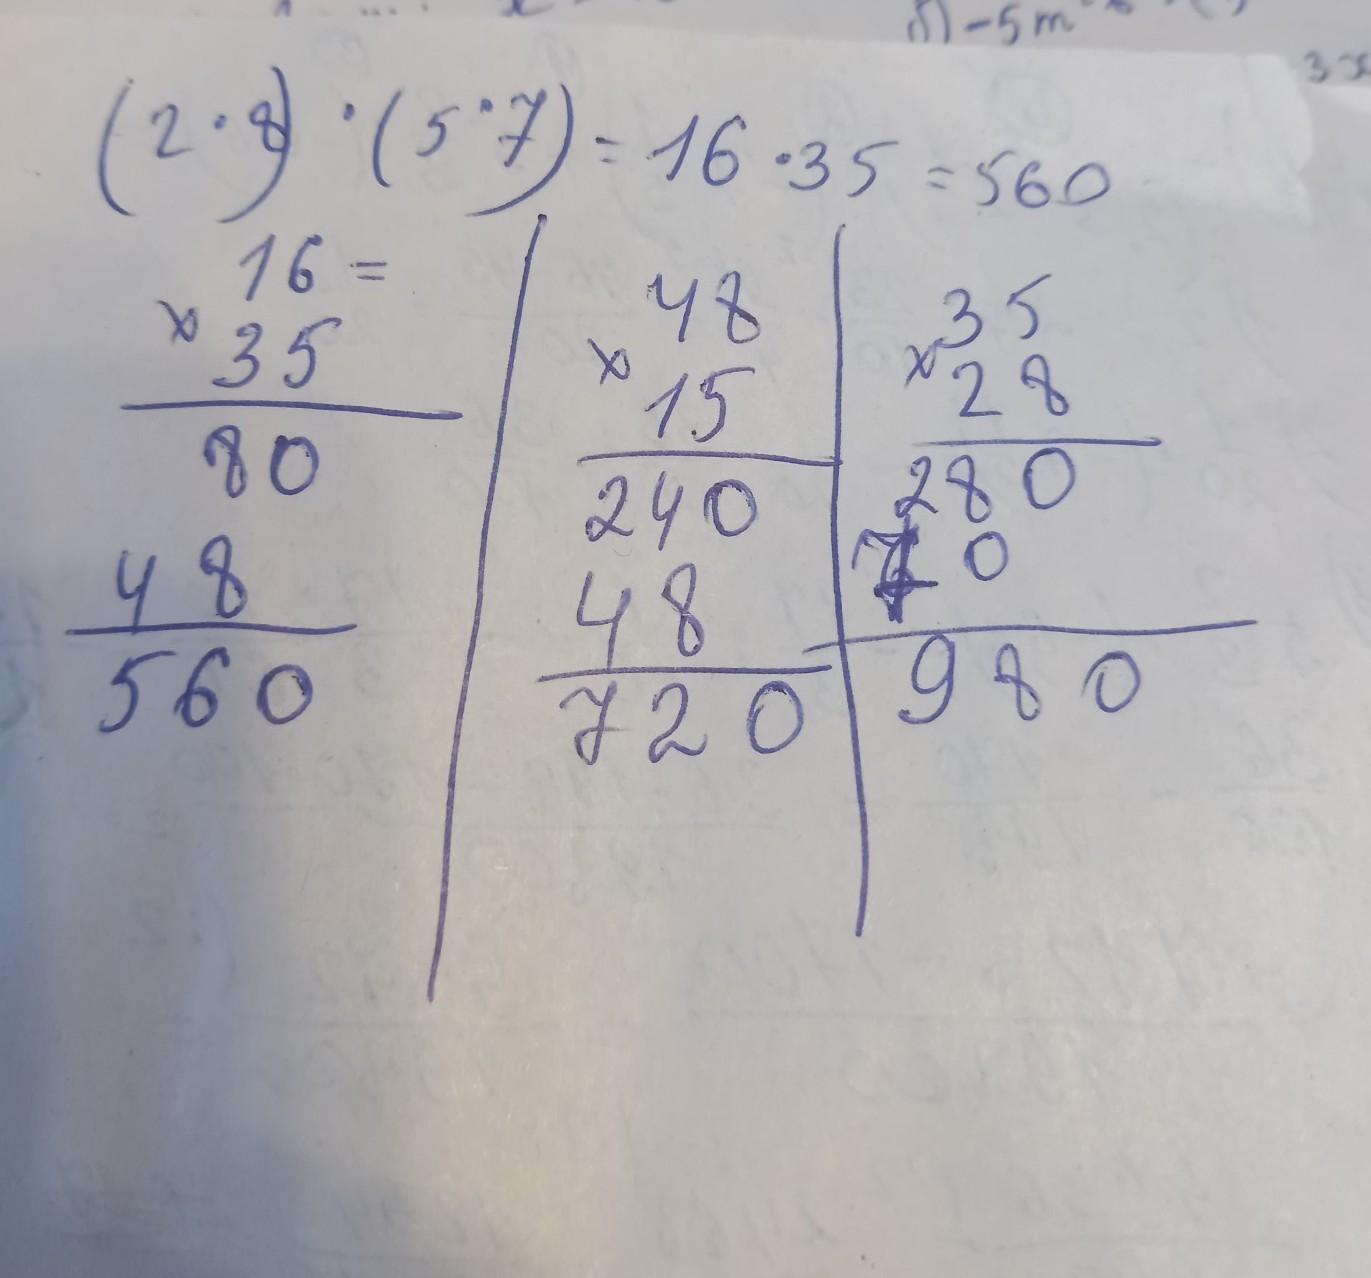 5) -5m
3x
(2·8)·(5·7)=16·35=560
16=
x 35
80
48
560
48
x 15
240
48
720
35
x 28
280
70
980